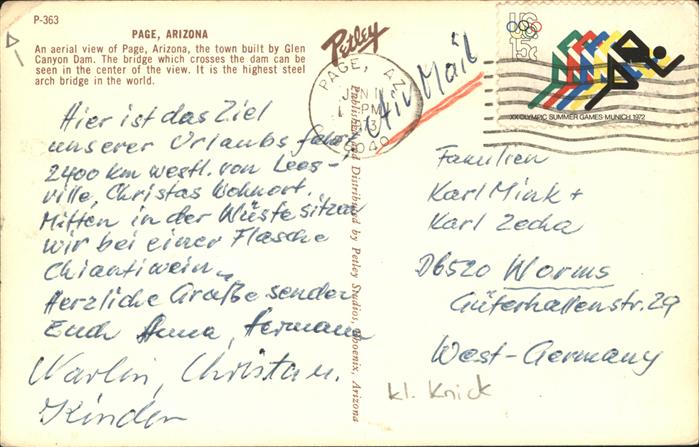 P-363
PAGE, ARIZONA
An aerial view of Page, Arizona, the town built by Glen
Canyon Dam. The bridge which crosses the dam can be
seen in the center of the view. It is the highest steel
arch bridge in the world.
Petley
PAGE, AZ
JUN
PM
86040
US
15c
XX OLYMPIC SUMMER GAMES · MUNICH 1972
Air Mail
Hier ist das Ziel
unserer Urlaubsfahrt,
2400 km westl. von Lees-
ville, Christas Wohnort.
Mitten in der Wüste sitzen
wir bei einer Flasche
Chiantiwein.
Herzliche Grüße senden
Euch Anna, Hermann
Christa u.
Kinder
Published and Distributed by Petley Studios, Phoenix, Arizona
Familien
Karl Mink +
Karl Zecha
D6520 Worms
Güterhallenstr. 29
West-Germany
kl. Knick